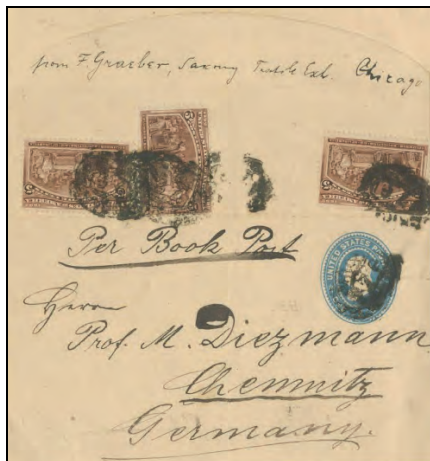 from F. Graeber, Saxony Textile Exh. Chicago
Per Book Post
UNITED STATES
Herrn
Prof. M. Diezmann
Chemnitz
Germany.